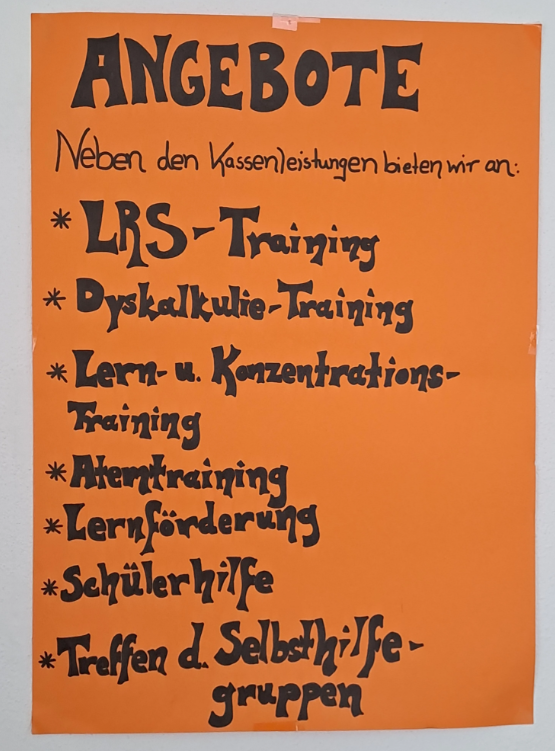 ANGEBOTE
Neben den Kassenleistungen bieten wir an:
* LRS-Training
* Dyskalkulie-Training
* Lern- u. Konzentrations-
Training
* Atemtraining
* Lernförderung
* Schülerhilfe
* Treffen d. Selbsthilfe-
gruppen